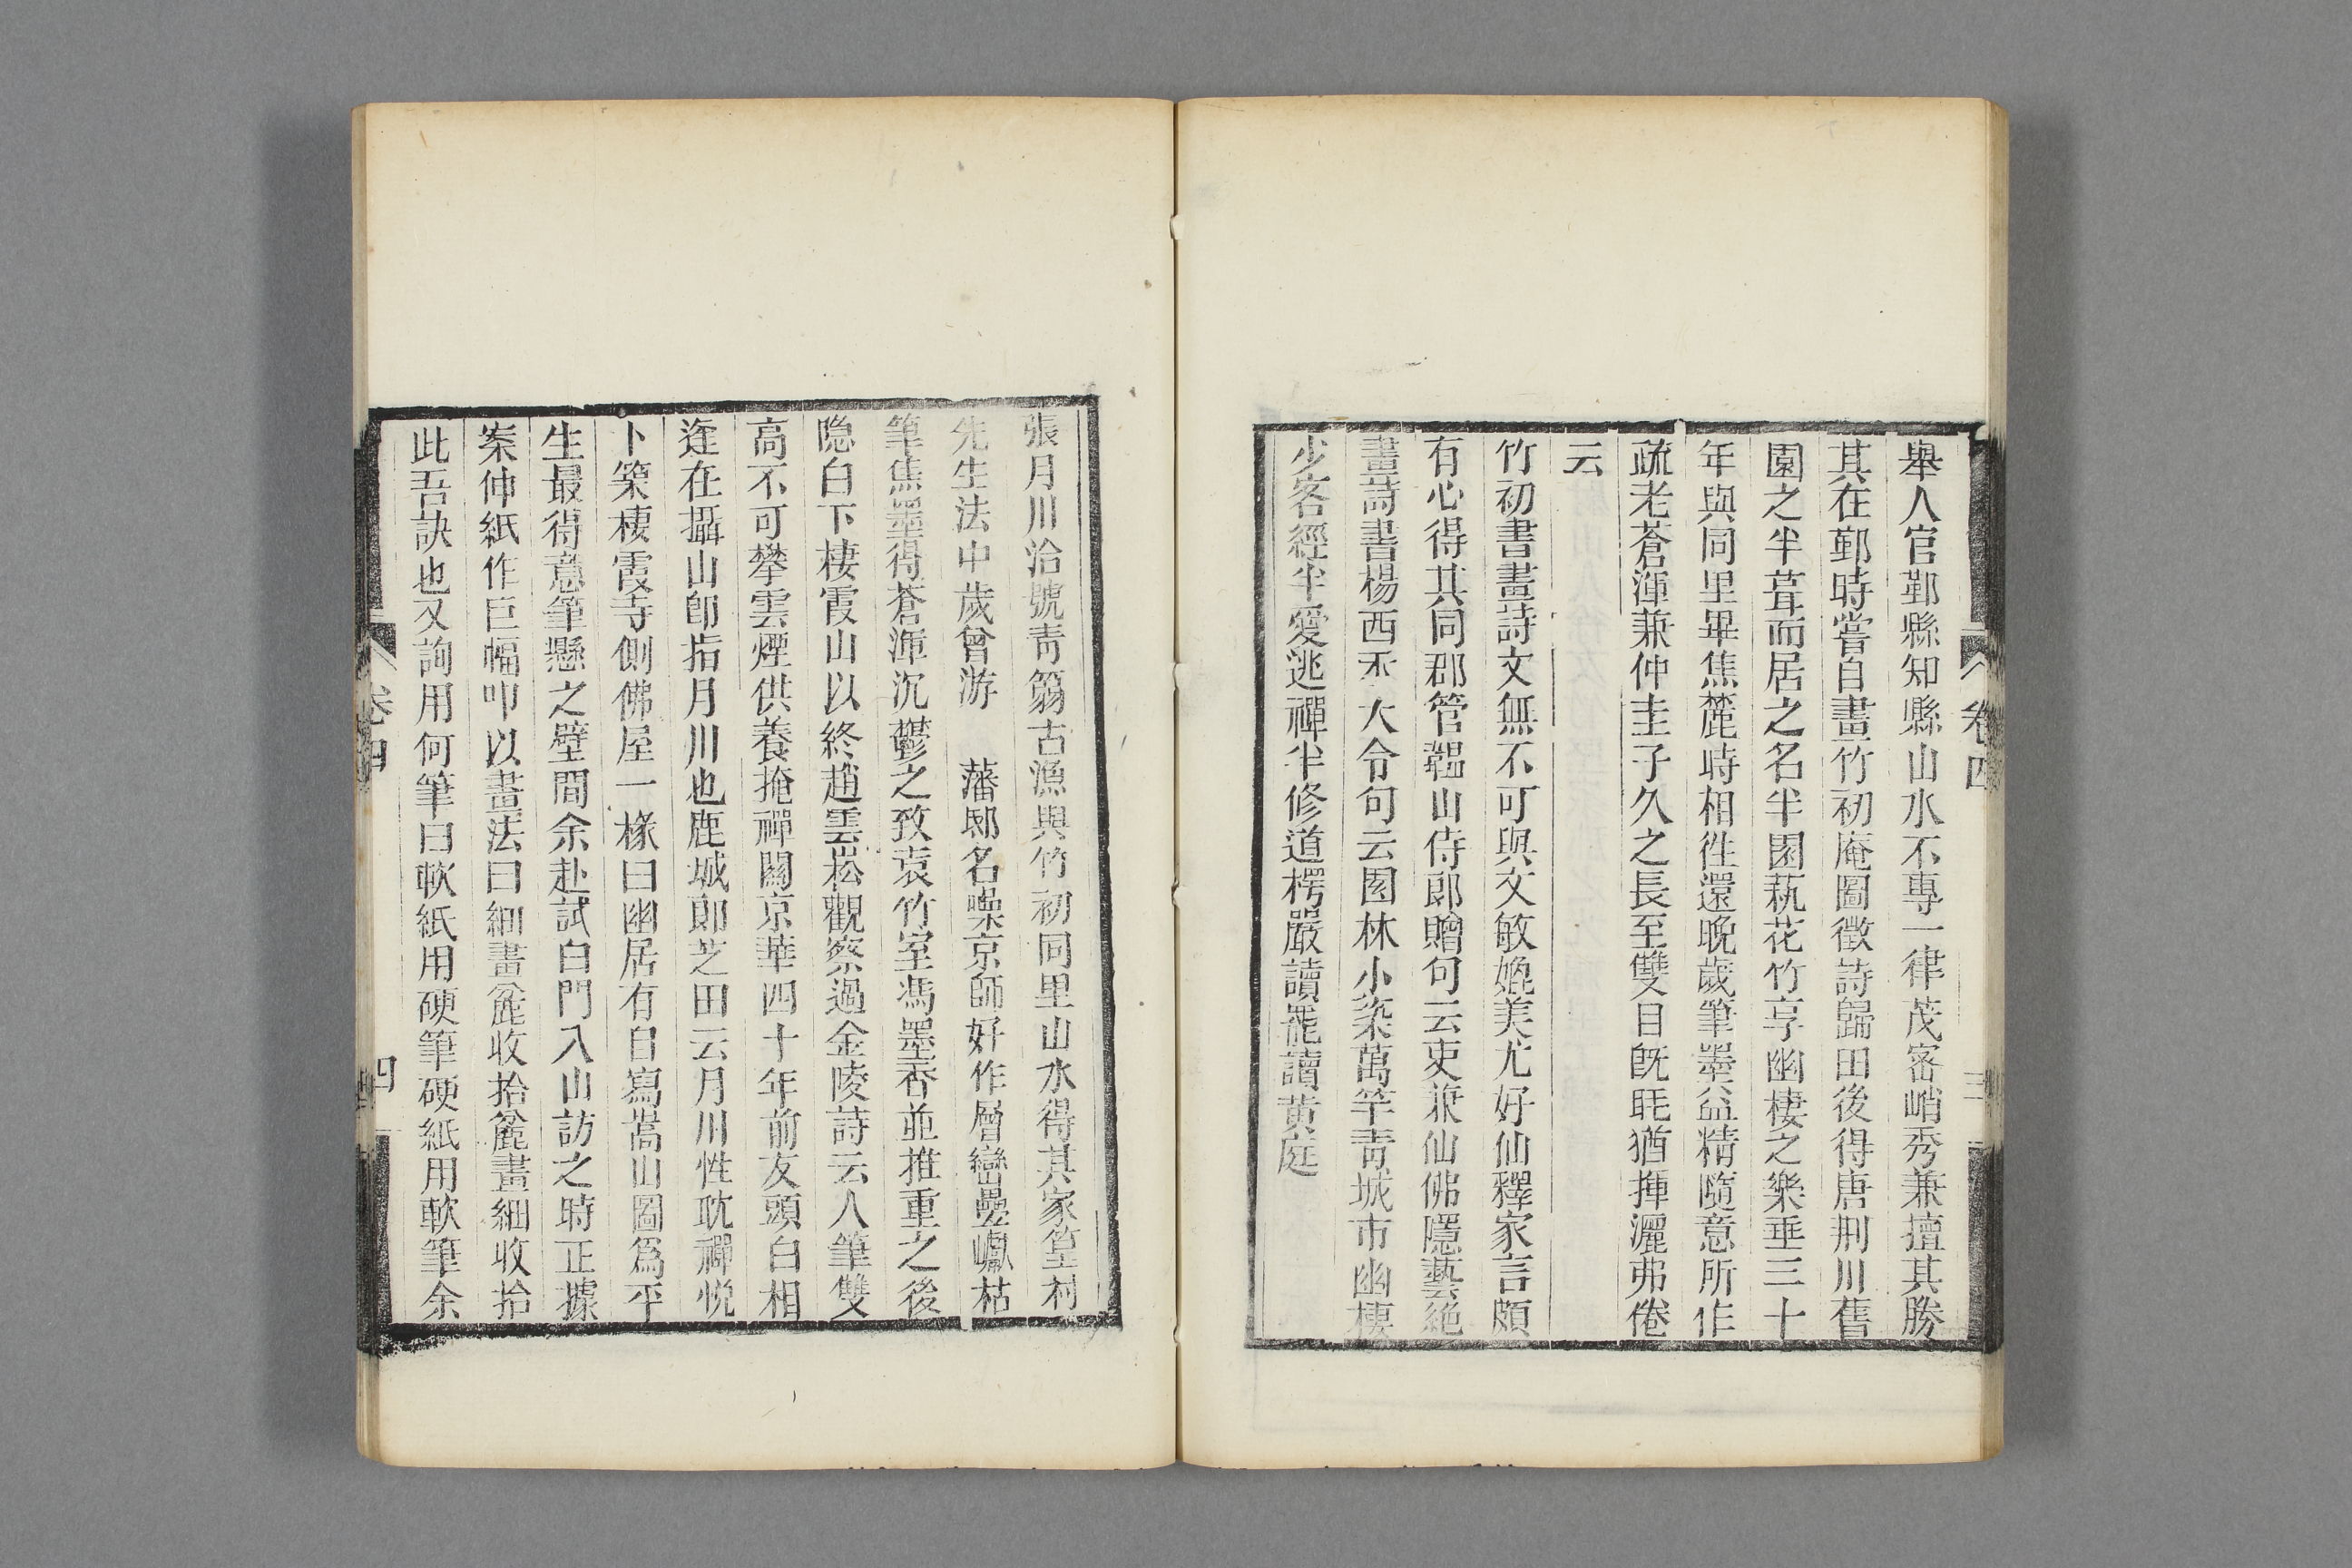 舉人官鄞縣知縣山水不專一律茂密峭秀兼擅其勝
其在鄞時嘗自畫竹初庵圖徵詩歸田後得唐荆川舊
園之半葺而居之名半園蓺花竹享幽棲之樂垂三十
年與同里畢焦麓時相徃還晚歲筆墨益精隨意所作
疏老蒼渾兼仲圭子久之長至雙目旣眊猶揮灑弗倦
云
竹初書畫詩文無不可與文敏媲美尤好仙釋家言頗
有心得其同郡管韞山侍郎贈句云吏兼仙佛隱藝絶
畫詩書楊西禾大令句云園林小染萬竿靑城市幽棲
少客經半愛逃禪半修道楞嚴讀罷讀黄庭
卷四
三
張月川洽號靑篛古漁與竹初同里山水得其家篁村
先生法中歲曾游 藩邸名噪京師好作層巒疊巘枯
筆焦墨得蒼渾沉鬱之致袁竹室馮墨香並推重之後
隐白下棲霞山以終趙雲崧觀察過金陵詩云八筆雙
高不可攀雲煙供養掩禪關京華四十年前友頭白相
逢在攝山卽指月川也鹿城郞芝田云月川性耽禪悦
卜築棲霞寺側佛屋一椽曰幽居有自寫嵩山圖爲平
生最得意筆懸之壁間余赴試白門入山訪之時正據
案伸紙作巨幅叩以畫法曰細畫麄收拾麄畫細收拾
此吾訣也又詢用何筆曰軟紙用硬筆硬紙用軟筆余
卷四
四